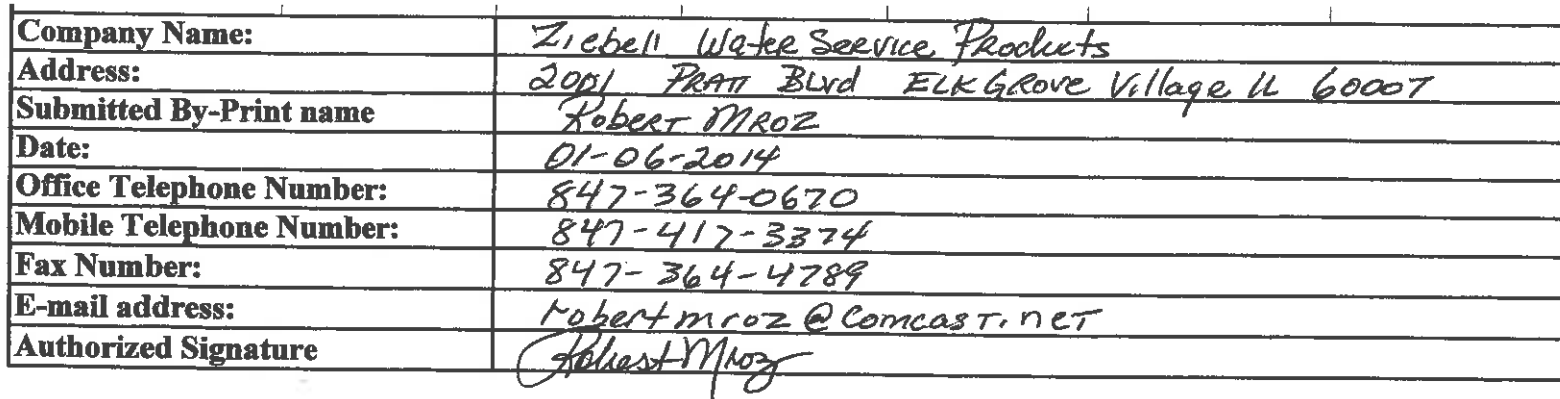 Company Name: Ziebell Water Service Products
Address: 2001 PRATT BLvd ELK GROVE Village IL 60007
Submitted By-Print name Robert MROZ
Date: 01-06-2014
Office Telephone Number: 847-364-0670
Mobile Telephone Number: 847-417-3374
Fax Number: 847-364-4789
E-mail address: robertmroz@comcast.net
Authorized Signature Robert Mroz